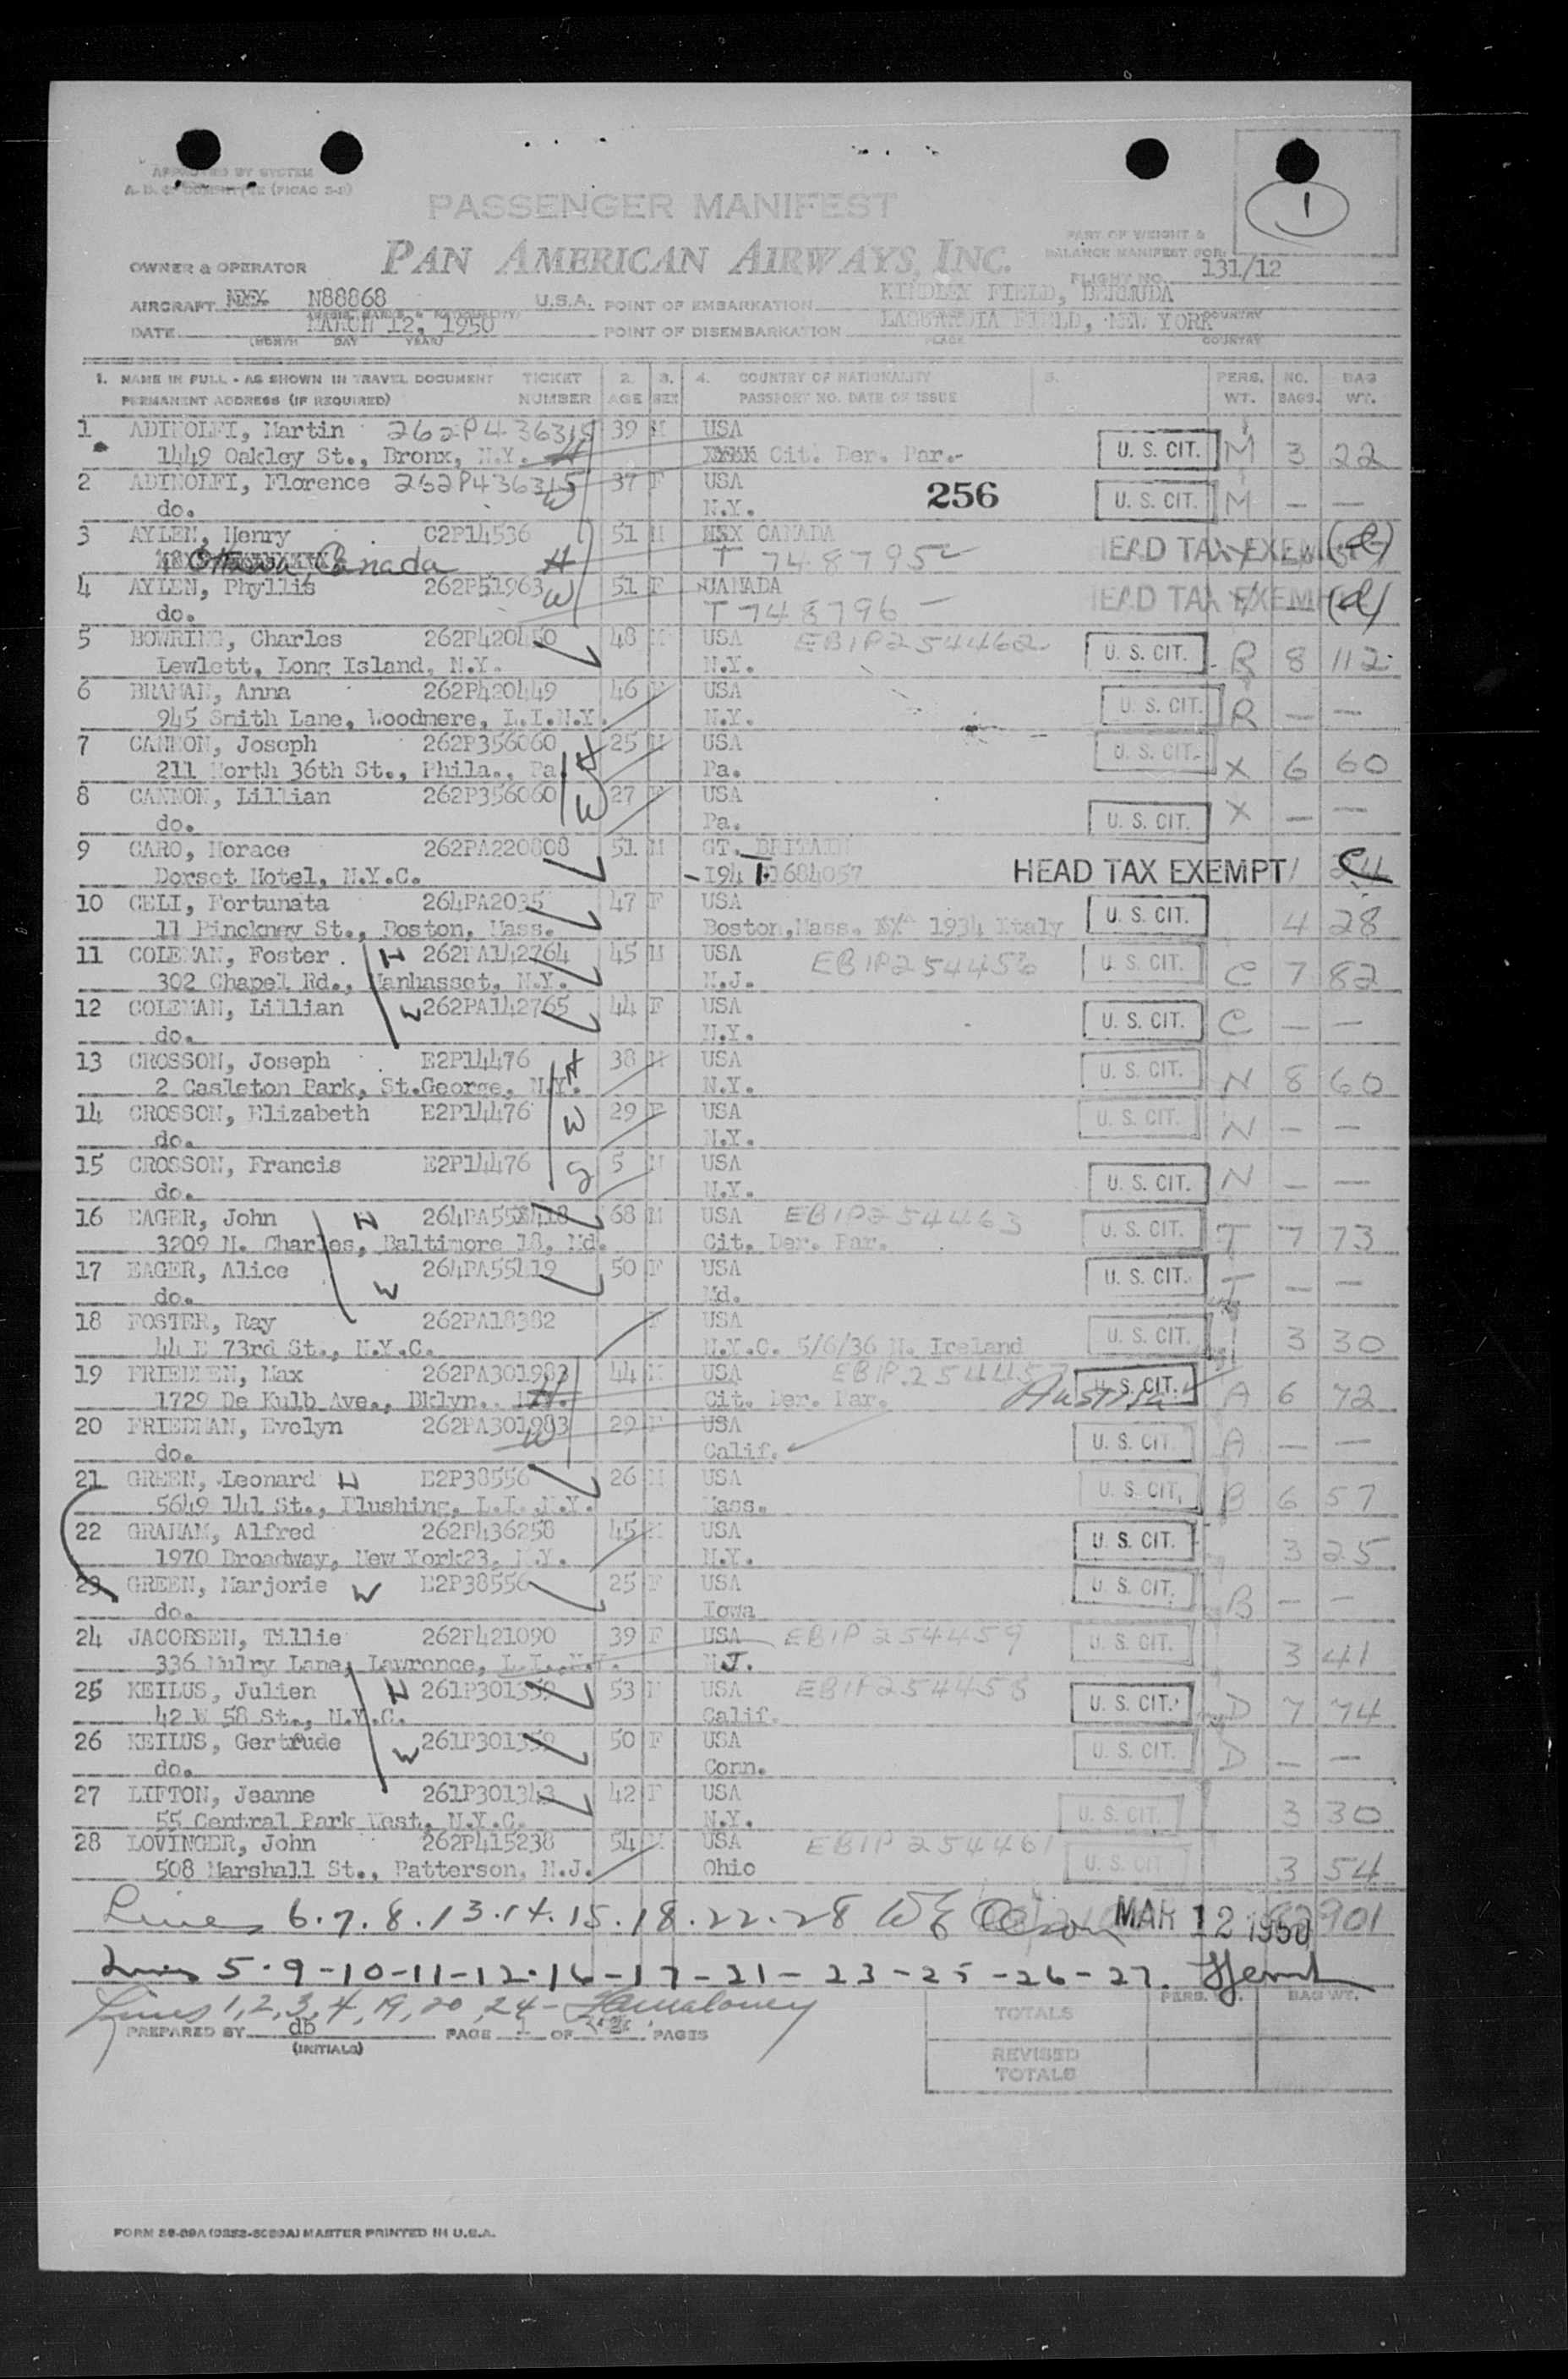 APPROVED BY SYSTEM
(FICAO S-2)
1
PASSENGER MANIFEST
PART OF WEIGHT &
BALANCE MANIFEST FOR:
OWNER & OPERATOR PAN AMERICAN AIRWAYS, INC.
FLIGHT NO. 131/12
AIRCRAFT N88868 U.S.A. POINT OF EMBARKATION KINDLEY FIELD, BERMUDA
DATE MARCH 12, 1950 POINT OF DISEMBARKATION LAGUARDIA FIELD, NEW YORK
(MONTH DAY YEAR) PLACE COUNTRY
1. NAME IN FULL - AS SHOWN IN TRAVEL DOCUMENT TICKET 2. 3. 4. COUNTRY OF NATIONALITY 5. PERS. NO. BAG
PERMANENT ADDRESS (IF REQUIRED) NUMBER AGE SEX PASSPORT NO. DATE OF ISSUE WT. BAGS. WT.
1 ADINOLFI, Martin 262P436315 39 M USA
1449 Oakley St., Bronx, N.Y. H Cit. Der. Par. U. S. CIT. M 3 22
2 ADINOLFI, Florence 262P436315 37 F USA
do. W N.Y. 256 U. S. CIT. M — —
3 AYLEN, Henry C2P14536 51 M CANADA
Ottawa Canada H T 748795 HEAD TAX EXEMPT
4 AYLEN, Phyllis 262P51963 51 F CANADA
do. W T 748796 HEAD TAX EXEMPT
5 BOWRING, Charles 262P420450 48 M USA EB1P254462
Lewlett, Long Island, N.Y. N.Y. U. S. CIT. R 8 112
6 BRAMAN, Anna 262P420449 46 F USA
945 Smith Lane, Woodmere, L.I.N.Y. N.Y. U. S. CIT. R — —
7 CANNON, Joseph 262P356060 25 M USA
211 North 36th St., Phila., Pa. H Pa. U. S. CIT. X 6 60
8 CANNON, Lillian 262P356060 27 F USA
do. W Pa. U. S. CIT. X — —
9 CARO, Horace 262PA220808 51 M GT. BRITAIN
Dorset Hotel, N.Y.C. 194 1684057 HEAD TAX EXEMPT
10 CELI, Fortunata 264PA2035 47 F USA
11 Pinckney St., Boston, Mass. Boston, Mass. 1934 Italy U. S. CIT. 4 28
11 COLEMAN, Foster H 262PA142764 45 M USA EB1P254456
302 Chapel Rd., Manhasset, N.Y. N.J. U. S. CIT. C 7 82
12 COLEMAN, Lillian W 262PA142765 44 F USA
do. N.Y. U. S. CIT. C — —
13 CROSSON, Joseph E2P14476 H 38 M USA
2 Casleton Park, St.George, N.Y. N.Y. U. S. CIT. N 8 60
14 CROSSON, Elizabeth E2P14476 W 29 F USA
do. N.Y. U. S. CIT. N — —
15 CROSSON, Francis E2P14476 S 5 M USA
do. N.Y. U. S. CIT. N — —
16 EAGER, John H 68 M USA EB1P254463
3209 N. Charles, Baltimore 18, Md. Cit. Der. Par. U. S. CIT. T 7 73
17 EAGER, Alice W 264PA55419 50 F USA
do. Md. U. S. CIT. T — —
18 FOSTER, Ray 262PA18382 F USA
44 E 73rd St., N.Y.C. N.Y.C. 5/6/36 N. Ireland U. S. CIT. 3 30
19 FRIEDMEN, Max 262PA301983 44 M USA EB1P254457
1729 De Kulb Ave., Bklyn. H Cit. Der. Par. Austria U. S. CIT. A 6 72
20 FRIEDMAN, Evelyn 262PA301983 29 F USA
do. W Calif. U. S. CIT. A — —
21 GREEN, Leonard H E2P38556 26 M USA
5649 141 St., Flushing, L.I. N.Y. Mass. U. S. CIT. B 6 57
22 GRAHAM, Alfred 262P436258 45 M USA
1970 Broadway, New York23, N.Y. N.Y. U. S. CIT. 3 25
23 GREEN, Marjorie W E2P38556 25 F USA
do. Iowa U. S. CIT. B — —
24 JACOBSEN, Tillie 262P421090 39 F USA EB1P254459
336 Mulry Lane, Lawrence, L.I. N.Y. N.J. U. S. CIT. 3 41
25 KEILUS, Julien H 261P301359 53 M USA EB1P254458
42 W 58 St., N.Y.C. Calif. U. S. CIT. D 7 74
26 KEILUS, Gertrude W 261P301359 50 F USA
do. Conn. U. S. CIT. D — —
27 LIFTON, Jeanne 261P301343 42 F USA
55 Central Park West, N.Y.C. N.Y. U. S. CIT. 3 30
28 LOVINGER, John 262P415238 54 M USA EB1P254461
508 Marshall St., Patterson, N.J. Ohio U. S. CIT. 3 54
Lines 6.7.8.13.14.15.18.22.28 MAR 12 1950 901
Lines 5.9-10-11-12.16-17-21-23-25-26-27.
Lines 1,2,3,4,19,20,24-
PERS. WT. BAG WT.
TOTALS
PREPARED BY db PAGE 1 OF 2 PAGES
(INITIALS)
REVISED
TOTALS
FORM MASTER PRINTED IN U.S.A.